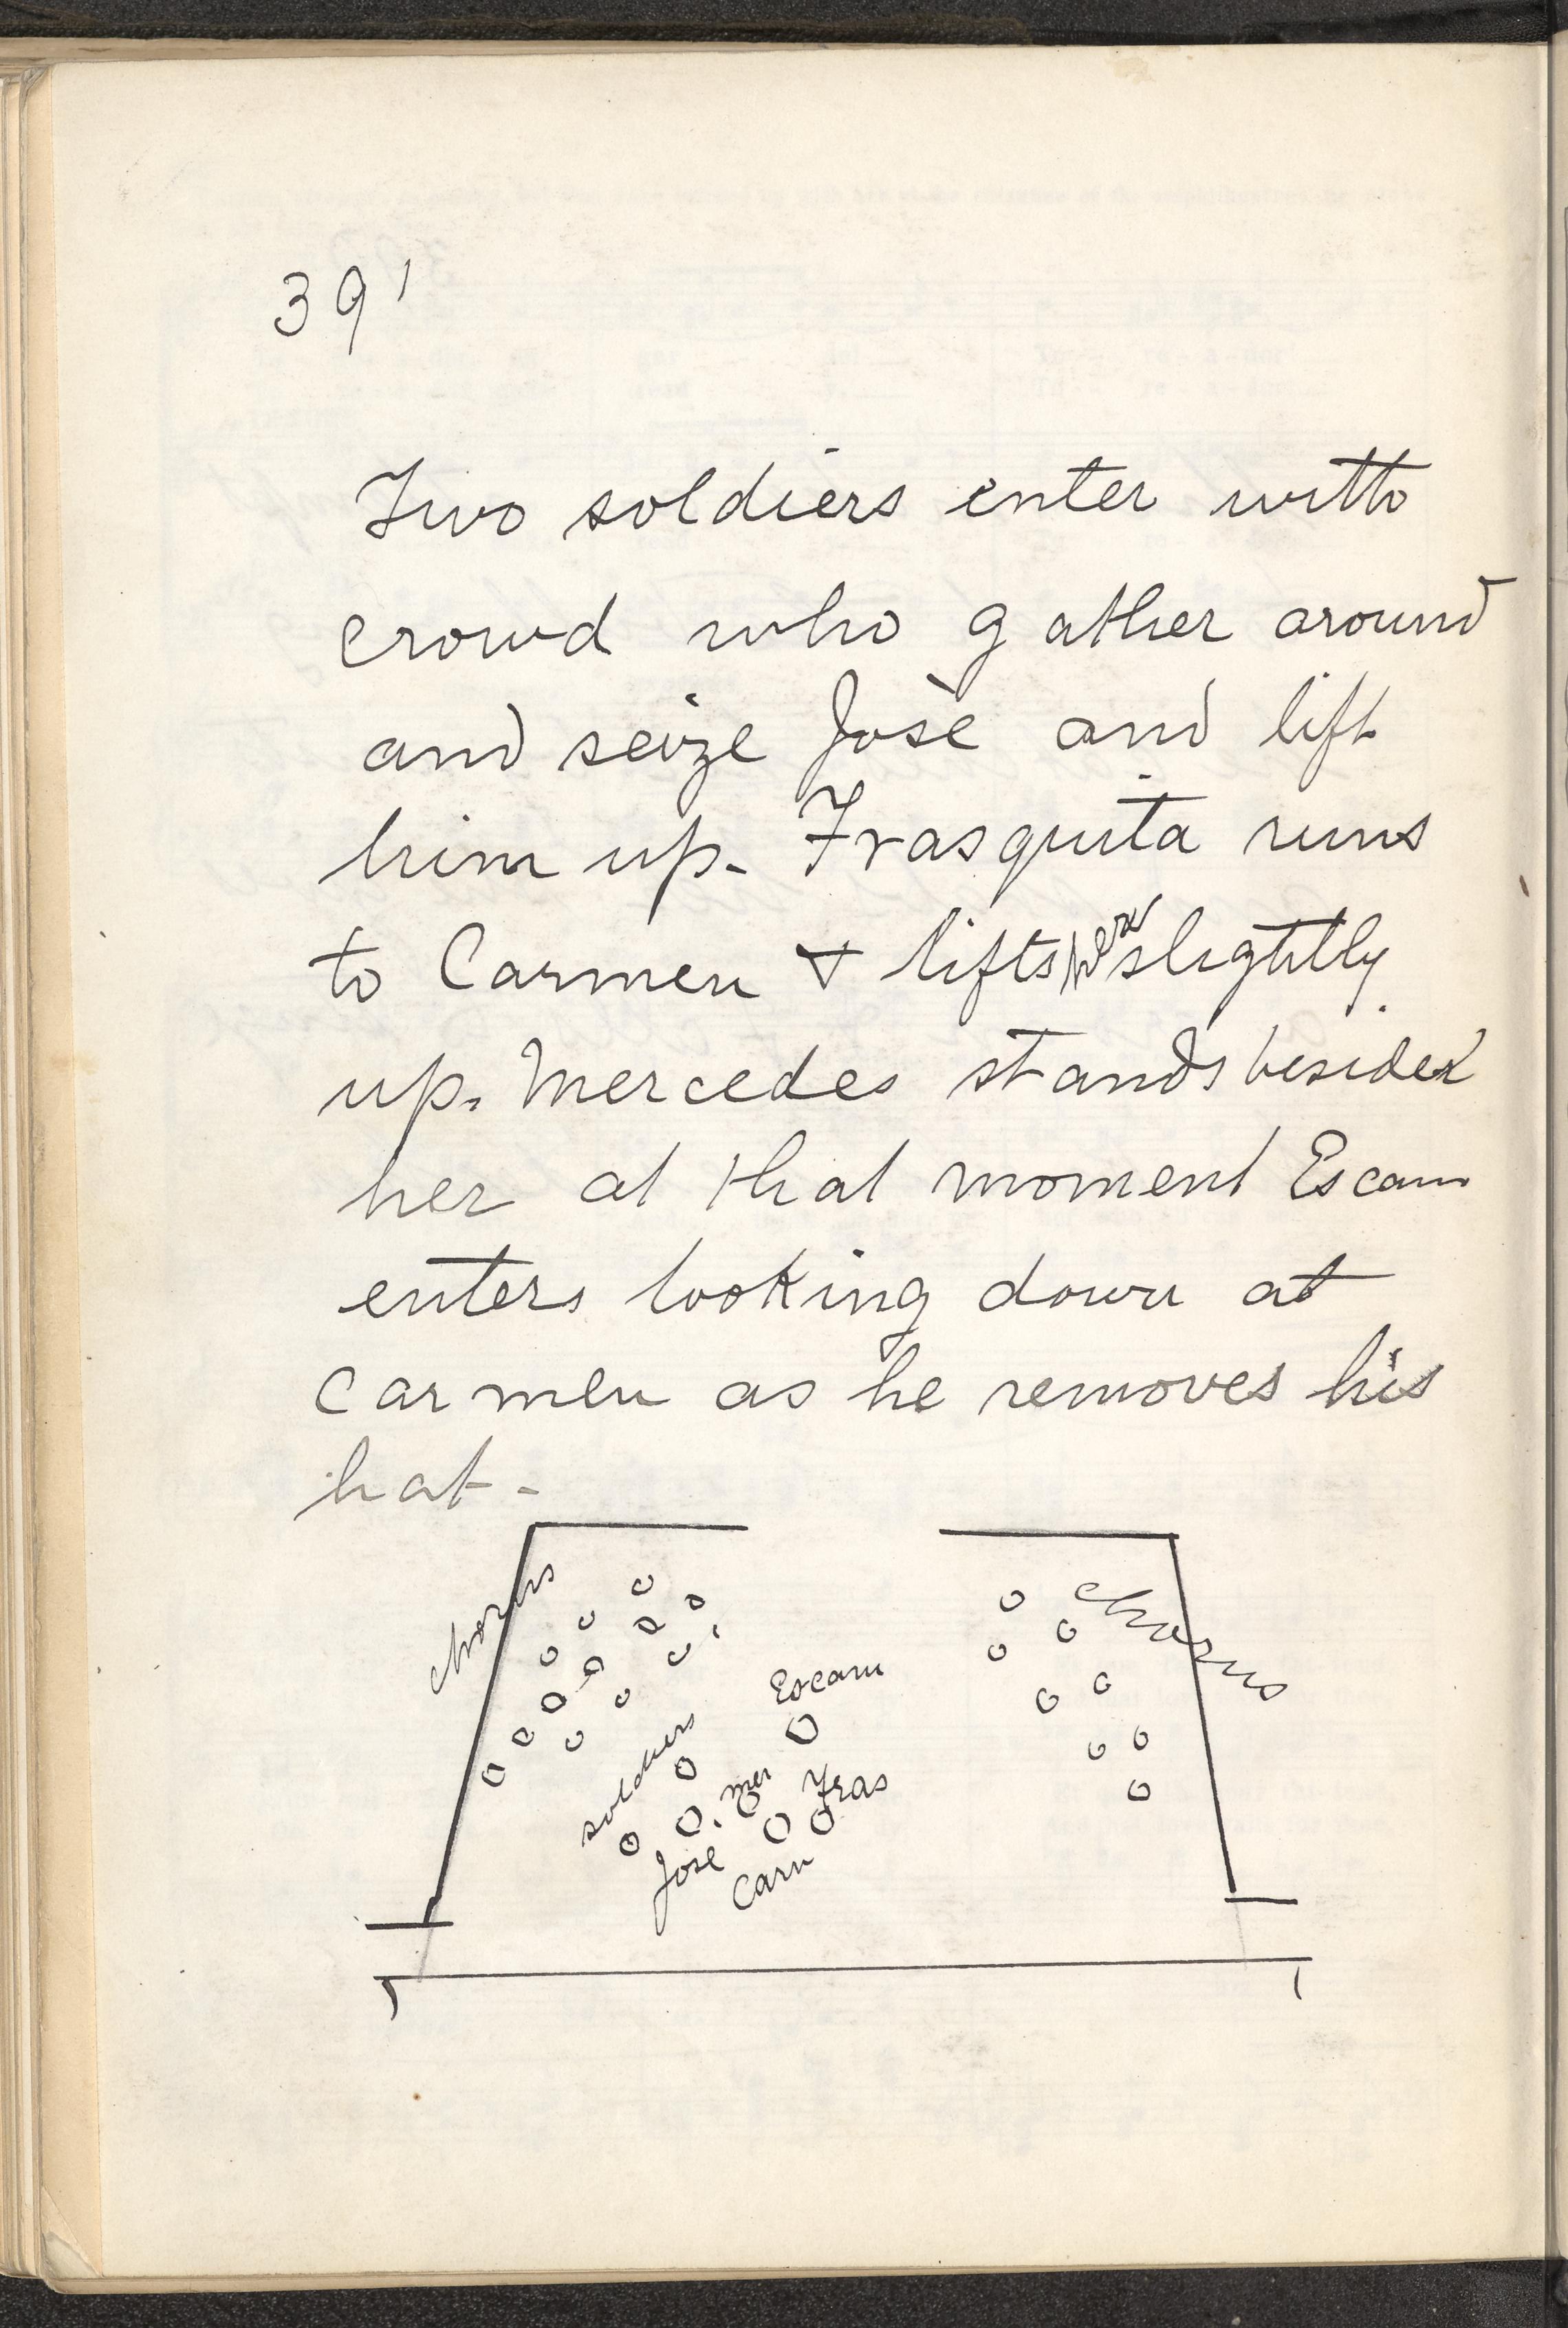 391
Two soldiers enter with
crowd who gather around
and seize José and lift
him up. Frasquita runs
to Carmen & lifts her slightly
up. Mercedes stands beside
her at that moment Escam
enters looking down at
Carmen as he removes his
hat-
chorus
chorus
Escam
soldiers
mer
Fras
José
Carm